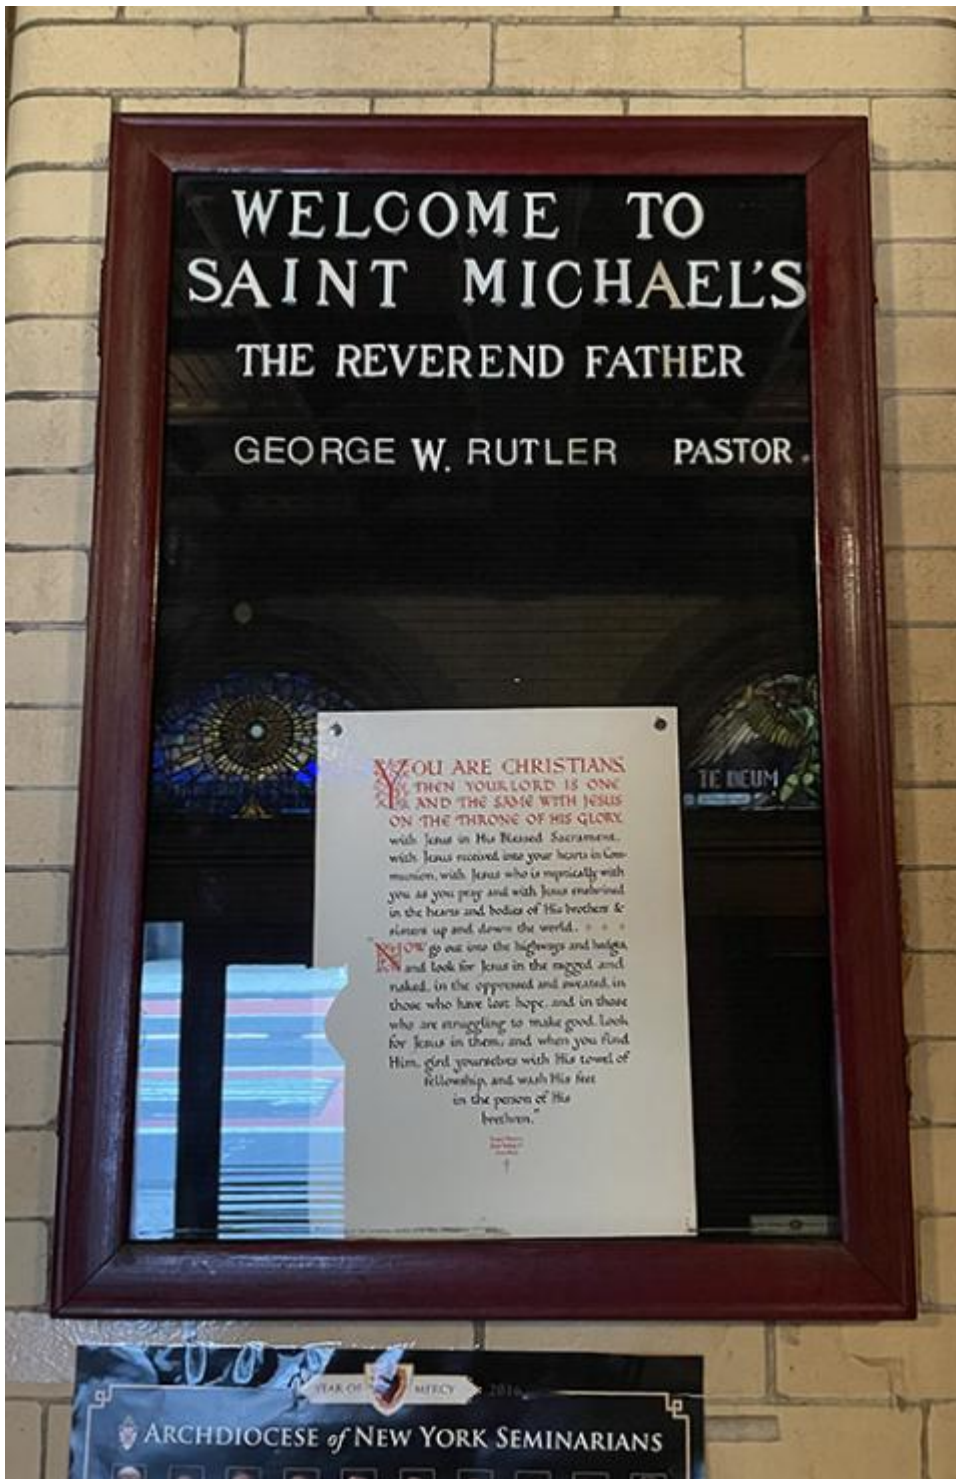 WELCOME TO
SAINT MICHAEL'S
THE REVEREND FATHER
GEORGE W. RUTLER PASTOR.
TE DEUM
YOU ARE CHRISTIANS,
THEN YOUR LORD IS ONE
AND THE SAME WITH JESUS
ON THE THRONE OF HIS GLORY,
with Jesus in His Blessed Sacrament,
with Jesus received into your hearts in Com-
munion, with Jesus who is mystically with
you as you pray and with Jesus enshrined
in the hearts and bodies of His brothers &
sisters up and down the world. . . .
"NOW go out into the highways and hedges,
and look for Jesus in the ragged and
naked, in the oppressed and sweated, in
those who have lost hope, and in those
who are struggling to make good. Look
for Jesus in them; and when you find
Him, gird yourselves with His towel of
fellowship, and wash His feet
in the person of His
brethren."
YEAR OF MERCY 2016
ARCHDIOCESE of NEW YORK SEMINARIANS